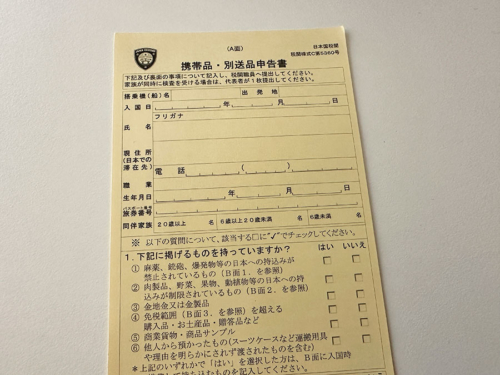 (A面)
日本国税関
税関様式C第5360号
携帯品・別送品申告書
下記及び裏面の事項について記入し、税関職員へ提出してください。
家族が同時に検査を受ける場合は、代表者が1枚提出してください。
搭乗機(船)名 出発地
入国日 年 月 日
フリガナ
氏名
現住所
(日本での
滞在先)
電話 ( )
職業
生年月日 年 月 日
パスポート番号
旅券番号
同伴家族 20歳以上 名 6歳以上20歳未満 名 6歳未満 名
※ 以下の質問について、該当する□に"✓"でチェックしてください。
1.下記に掲げるものを持っていますか? はい いいえ
① 麻薬、銃砲、爆発物等の日本への持込みが
禁止されているもの(B面1.を参照)
② 肉製品、野菜、果物、動植物等の日本への持
込みが制限されているもの(B面2.を参照)
③ 金地金又は金製品
④ 免税範囲(B面3.を参照)を超える
購入品・お土産品・贈答品など
⑤ 商業貨物・商品サンプル
⑥ 他人から預かったもの(スーツケースなど運搬用具
や理由を明らかにされず渡されたものを含む)
*上記のいずれかで「はい」を選択した方は、B面に入国時
持ち込むものを記入してください。